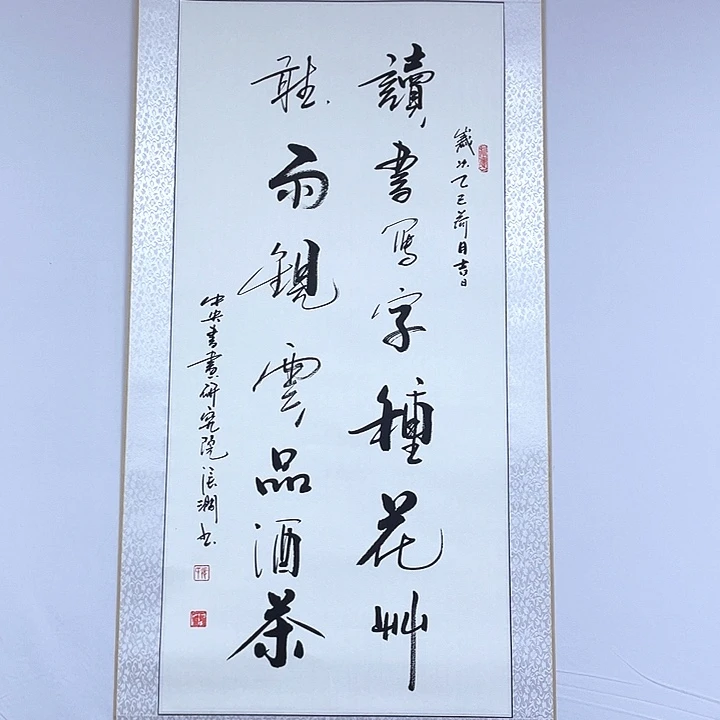 歲次乙巳荷月吉日
讀書写字種花艸
聽雨觀雲品酒茶
中央書畫研究院張潤书